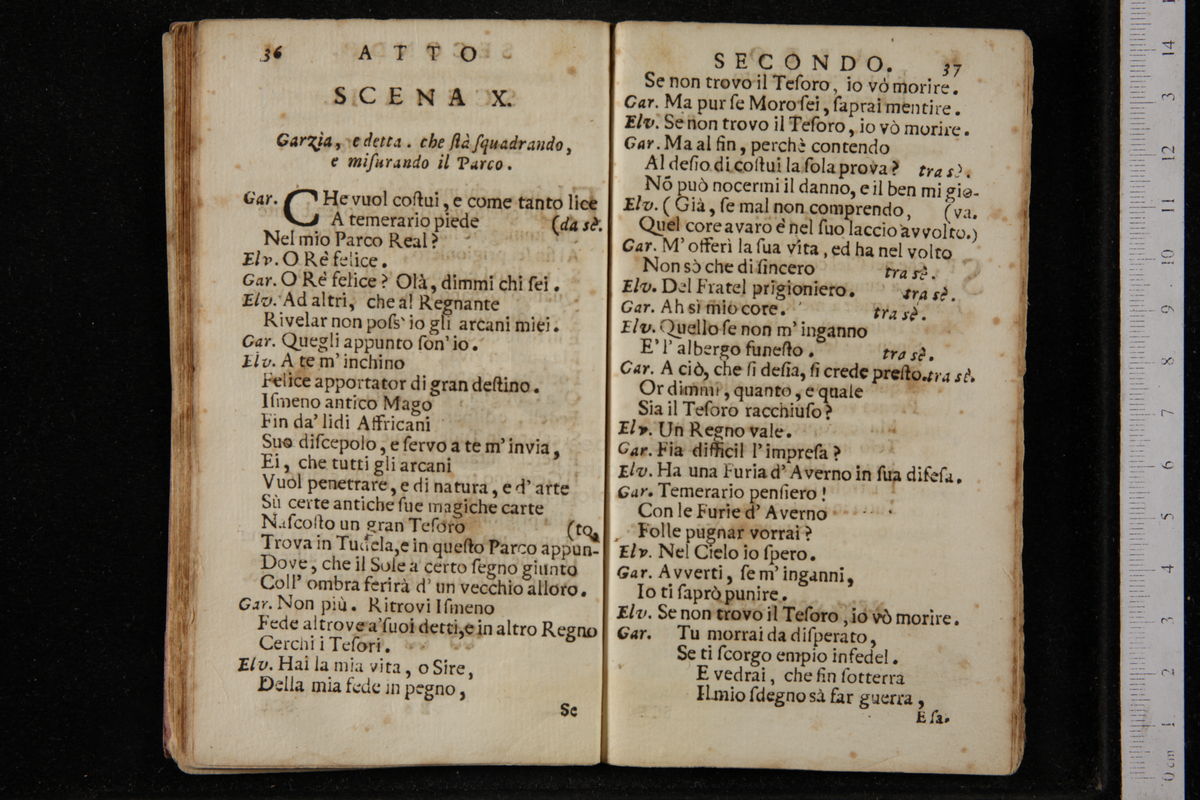 36 ATTO
SCENA X.
Garzia, e detta. che ſtà ſquadrando,
e miſurando il Parco.
Gar. CHe vuol coſtui, e come tanto lice
A temerario piede (da sè.
Nel mio Parco Real?
Elv. O Rè felice.
Gar. O Rè felice? Olà, dimmi chi ſei.
Elv. Ad altri, che al Regnante
Rivelar non poſs' io gli arcani miei.
Gar. Quegli appunto ſon' io.
Elv. A te m' inchino
Felice apportator di gran deſtino.
Iſmeno antico Mago
Fin da' lidi Affricani
Suo diſcepolo, e ſervo a te m' invia,
Ei, che tutti gli arcani
Vuol penetrare, e di natura, e d' arte
Sù certe antiche ſue magiche carte
Naſcoſto un gran Teſoro (to,
Trova in Tudela, e in queſto Parco appun-
Dove, che il Sole a certo ſegno giunto
Coll' ombra ferirà d' un vecchio alloro.
Gar. Non più. Ritrovi Iſmeno
Fede altrove a' ſuoi detti, e in altro Regno
Cerchi i Teſori.
Elv. Hai la mia vita, o Sire,
Della mia fede in pegno,
Se
SECONDO. 37
Se non trovo il Teſoro, io vò morire.
Gar. Ma pur ſe Moro ſei, ſaprai mentire.
Elv. Se non trovo il Teſoro, io vò morire.
Gar. Ma al fin, perchè contendo
Al deſio di coſtui la ſola prova? tra sè.
Nõ può nocermi il danno, e il ben mi gio-
Elv. (Già, ſe mal non comprendo, (va.
Quel core avaro è nel ſuo laccio avvolto.)
Gar. M' offerì la ſua vita, ed ha nel volto
Non sò che di ſincero tra sè.
Elv. Del Fratel prigioniero. tra sè.
Gar. Ah sì mio core. tra sè.
Elv. Quello ſe non m' inganno
E' l' albergo funeſto. tra sè.
Gar. A ciò, che ſi deſia, ſi crede preſto. tra sè.
Or dimmi, quanto, e quale
Sia il Teſoro racchiuſo?
Elv. Un Regno vale.
Gar. Fia difficil l' impreſa?
Elv. Ha una Furia d' Averno in ſua difeſa.
Gar. Temerario penſiero!
Con le Furie d' Averno
Folle pugnar vorrai?
Elv. Nel Cielo io ſpero.
Gar. Avverti, ſe m' inganni,
Io ti ſaprò punire.
Elv. Se non trovo il Teſoro, io vò morire.
Gar. Tu morrai da diſperato,
Se ti ſcorgo empio infedel.
E vedrai, che fin ſotterra
Il mio ſdegno sà far guerra,
E ſa-
14
13
12
11
10
9
8
7
6
5
4
3
2
1
0 cm